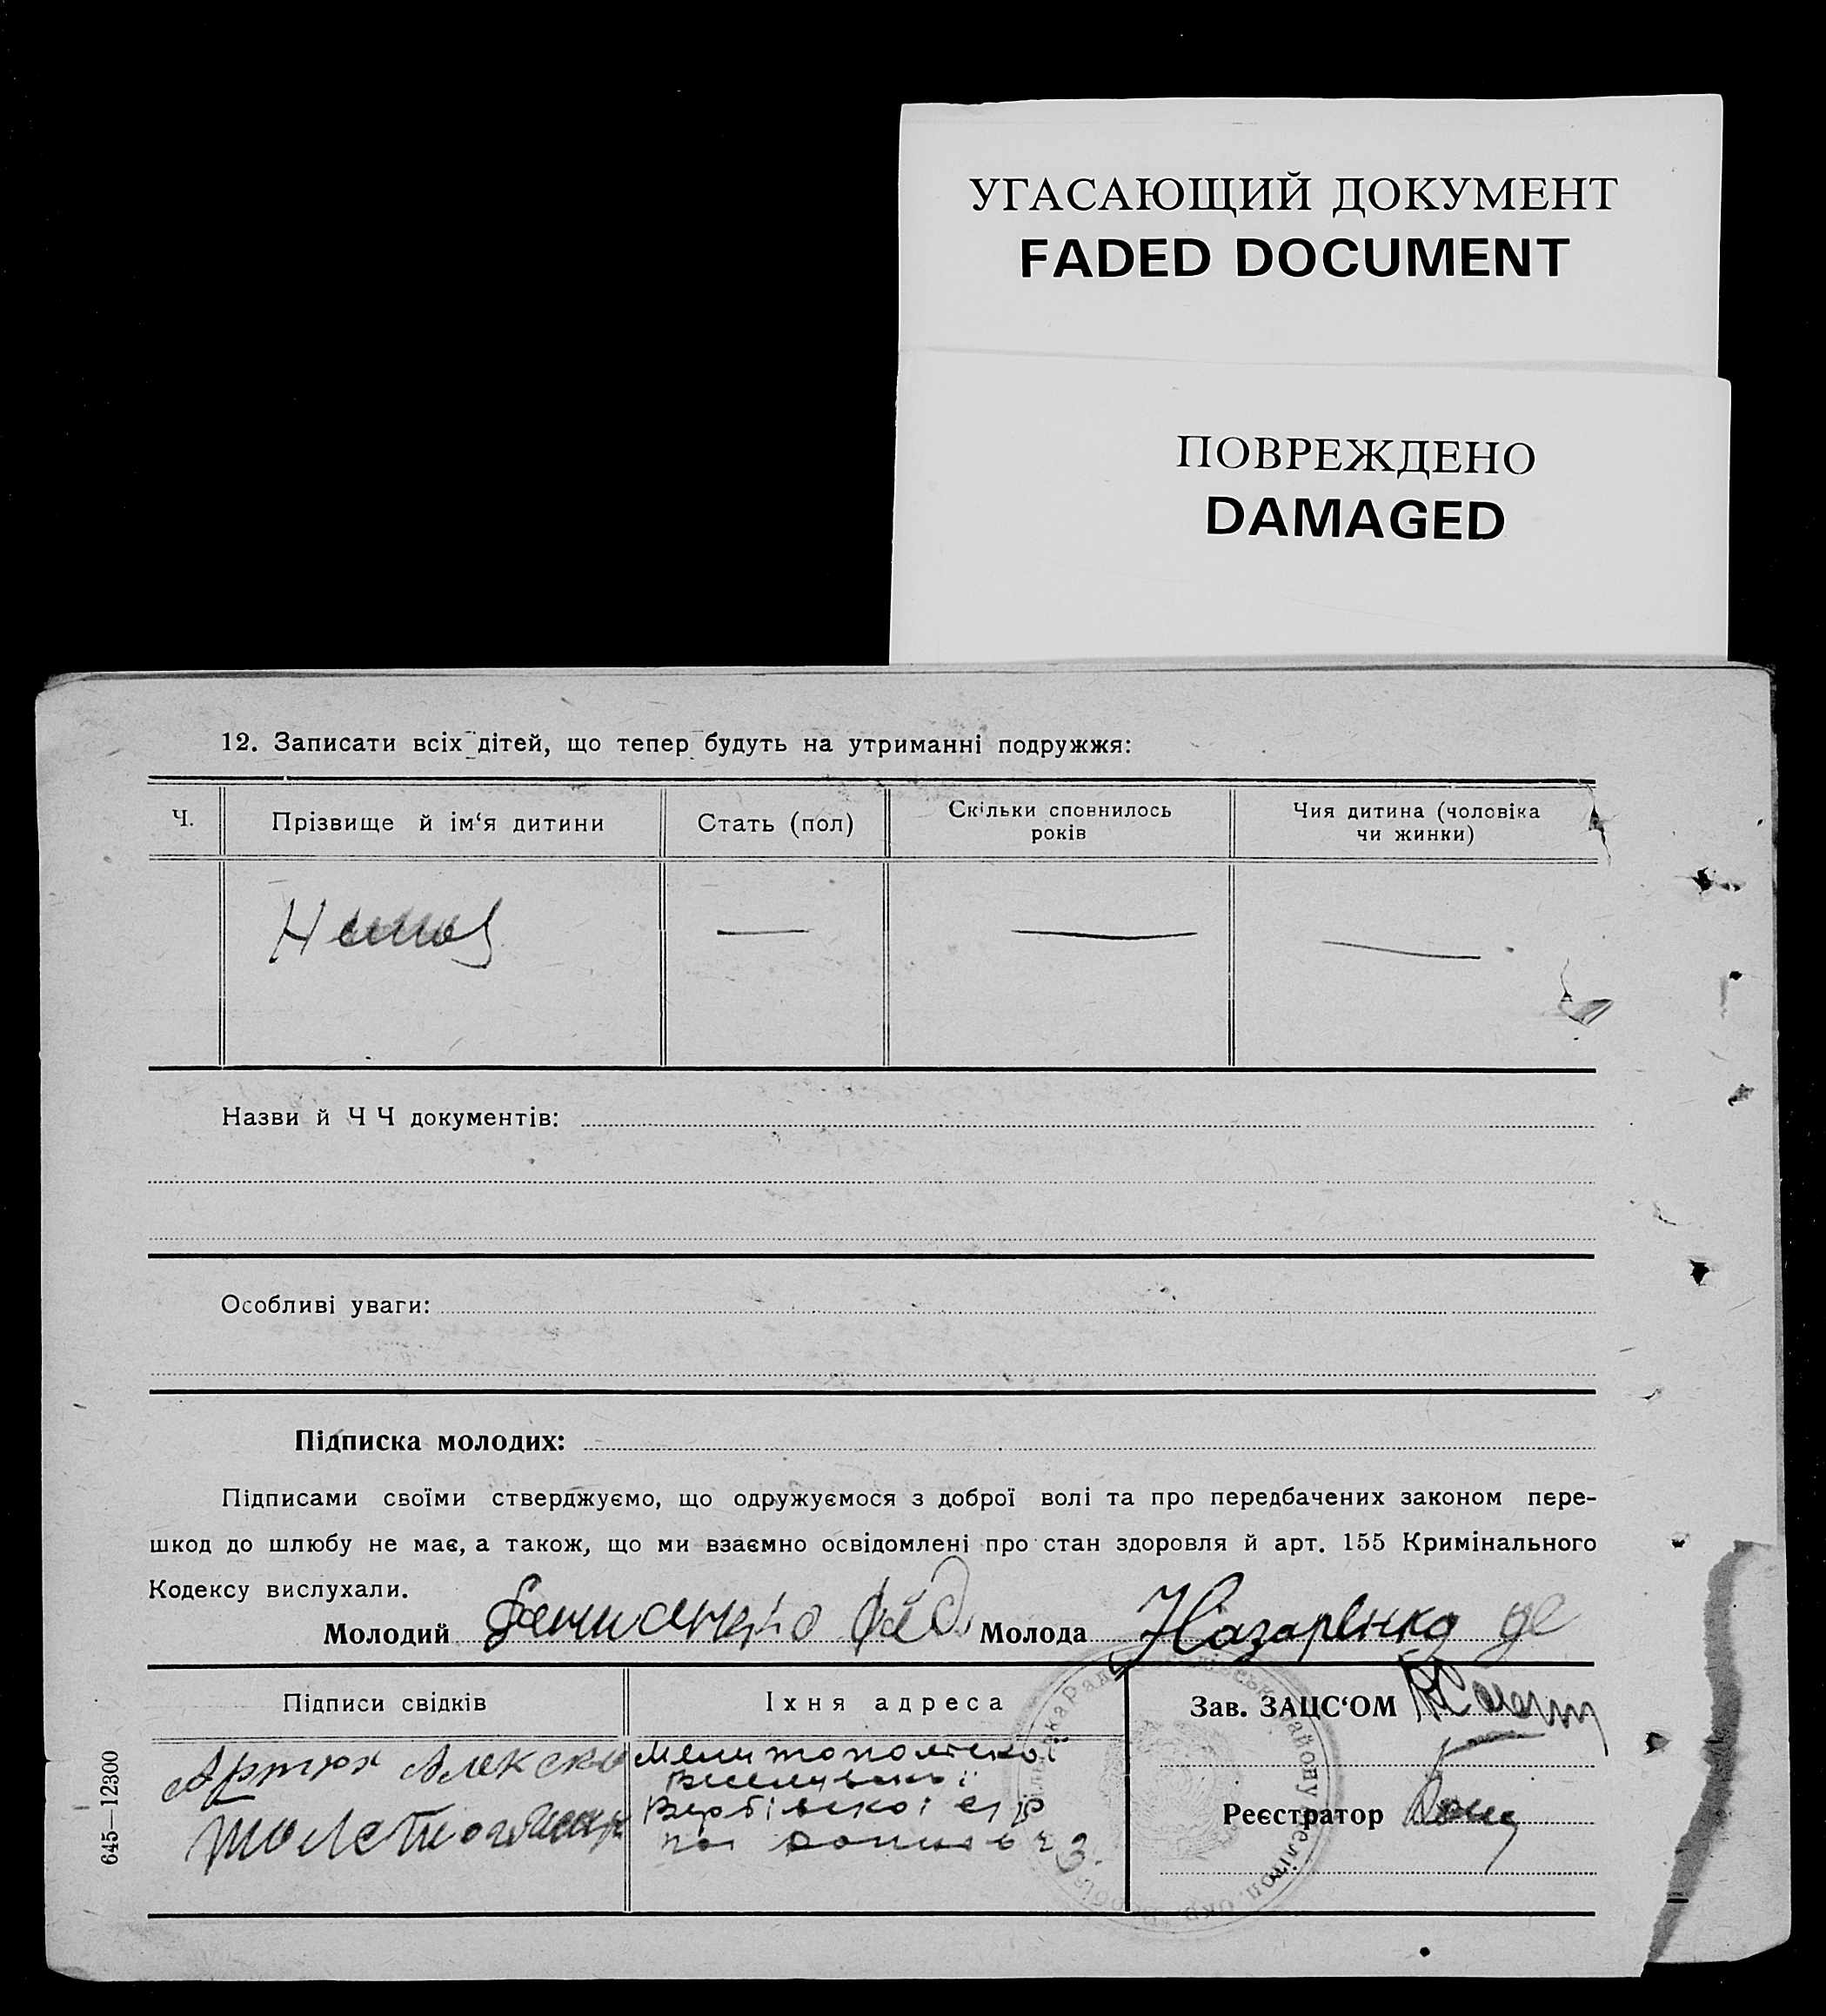 УГАСАЮЩИЙ ДОКУМЕНТ
FADED DOCUMENT
ПОВРЕЖДЕНО
DAMAGED
12. Записати всіх дітей, що тепер будуть на утриманні подружжя:
Ч.
Прізвище й ім‘я дитини
Стать (пол)
Скільки сповнилось
років
Чия дитина (чоловіка
чи жинки)
— — —
Назви й Ч Ч документів:
Особливі уваги:
Підписка молодих:
Підписами своїми стверджуємо, що одружуємося з доброї волі та про передбачених законом пере-
шкод до шлюбу не має, а також, що ми взаємно освідомлені про стан здоровля й арт. 155 Кримінального
Кодексу вислухали.
Молодий Молода Назаренко
Підписи свідків
Їхня адреса
Зав. ЗАЦС‘ОМ
Артюх Алекс
Мелитопольскої
Вербівскої
Реєстратор
645—12300